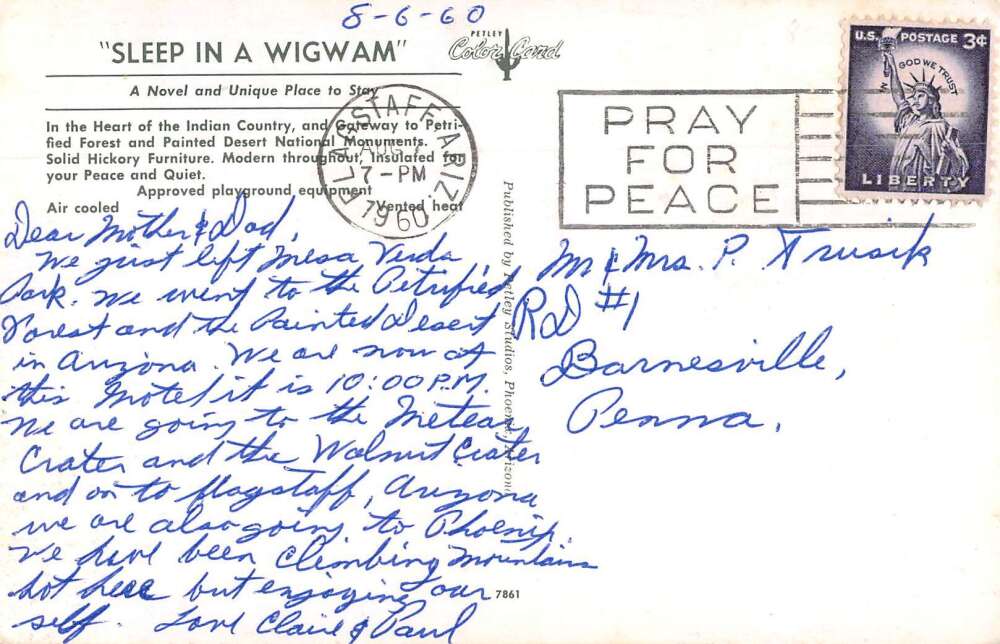 8-6-60
"SLEEP IN A WIGWAM"
A Novel and Unique Place to Stay
In the Heart of the Indian Country, and Gateway to Petri-
fied Forest and Painted Desert National Monuments.
Solid Hickory Furniture. Modern throughout, Insulated for
your Peace and Quiet.
Approved playground equipment
Air cooled Vented heat
PETLEY
Color Card
FLAGSTAFF, ARIZ.
AUG 7
7-PM
1960
PRAY
FOR
PEACE
U.S. POSTAGE 3¢
IN GOD WE TRUST
LIBERTY
Dear Mother & Dad,
We just left Mesa Verda
Park. We went to the Petrified
Forest and the Painted Desert
in Arizona. We are now at
this Motel it is 10:00 P.M.
We are going to the Meteor
Crater and the Walnut Crater
and on to flagstaff, Arizona
we are also going to Phoenix.
We have been Climbing Mountains
hot here but enjoying our
self. Love Claire & Paul
Published by Petley Studios, Phoenix, Arizona
7861
Mr & Mrs. P. Trusik
RD #1
Barnesville,
Penna.